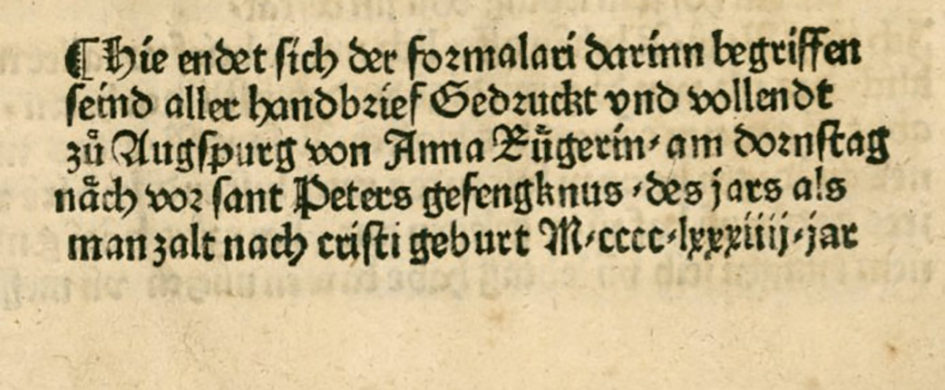 ¶ Hie endet sich der formalari darinn begriffen
seind aller handbrief Gedruckt vnd vollendt
zů Augspurg von Anna Růgerin, am dornstag
nåch vor sant Peters gefengknus, des jars als
man zalt nach cristi geburt M,cccc,lxxxiiij, jar